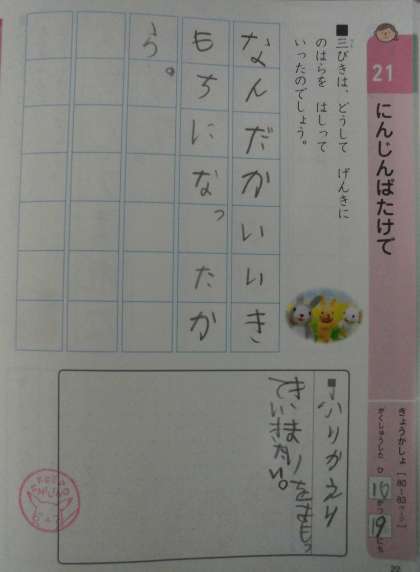 21
にんじんばたけで
きょうかしょ［80〜83ページ］
がくしゅうした ひ 10 がつ 19 にち
■三びきは、どうして げんきに
のはらを はしって
いったのでしょう。
なんだかいいき
もちになったか
ら。
■ふりかえり
きまりをまもっ
ていきたい。
22